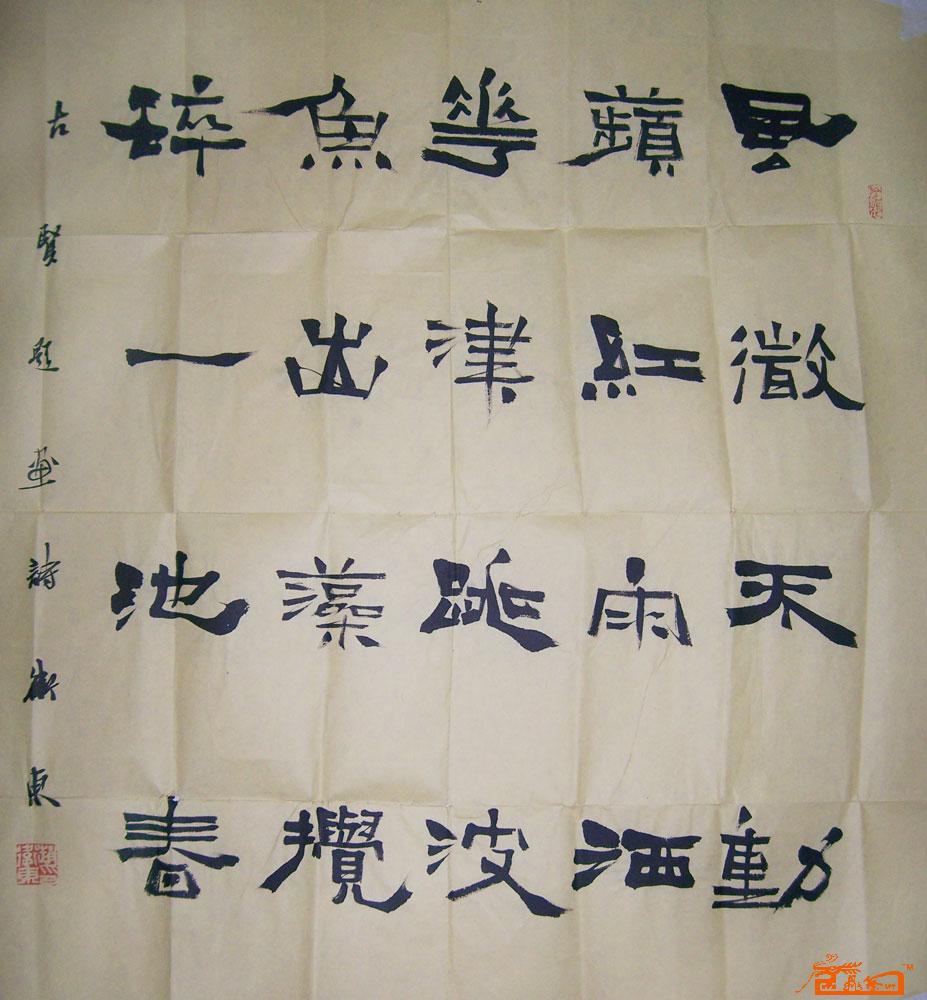 風微不動
蘋紅雨洒
華津跳波
魚出藻攪
碎一池春
古賢題畫詩衛東